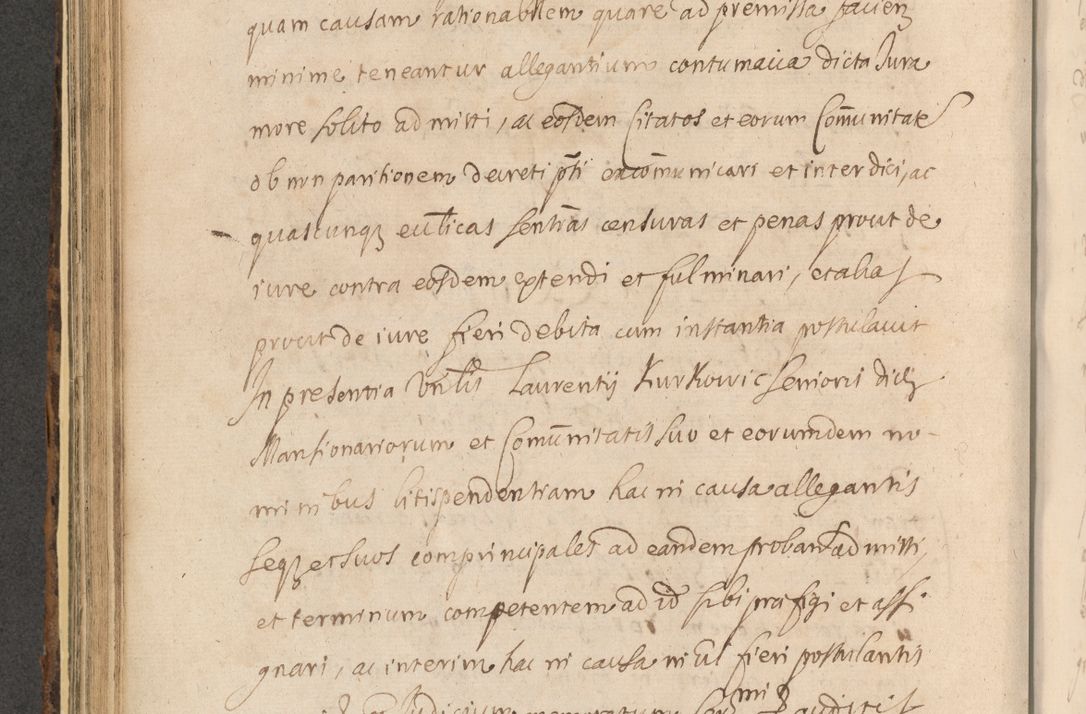 quam causam rationabilem quare ad premissa facienȝ
minime teneantur allegantium contumacia dicta Jura
more solito admitti, ac eosdem Citatos et eorum Com̄unitate
ob non paritionem decreti pn̄ti excom̄unicari et interdici, ac
quascunqȝ eccl̄icas sentn̄as censuras et penas prout de
iure contra eosdem extendi et fulminari, et alia
prout de iure fieri debita cum instantia postulavit
In presentia Vn̄lis Laurentij Kurkowic senioris dictȝ
Mansionariorum et Com̄unitatis suo et eorumdem no-
minibus litispendentiam hac in causa allegantis
seqȝ et suos comprincipales ad eandem proband admitti,
et terminum competentem ad id sibi præfigi et assi
gnari, ac interim hac in causa nil fieri postulantis
Judicium